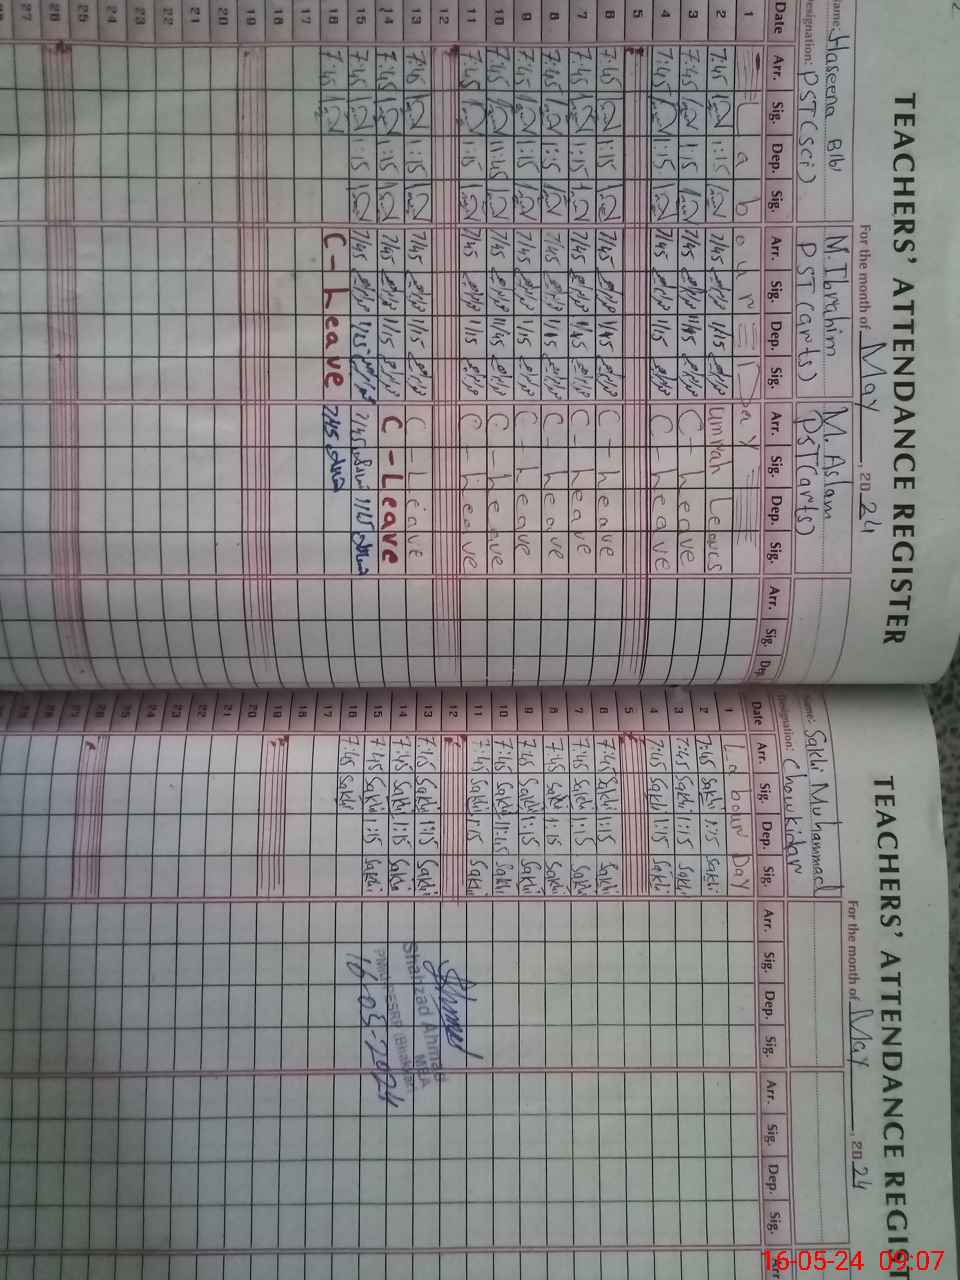 TEACHERS' ATTENDANCE REGISTER
For the month of May, 2024
Name: Haseena Bibi M. Ibrahim M. Aslam
Designation: PST(Sci) PST(arts) PST(arts)
Date Arr. Sig. Dep. Sig. Arr. Sig. Dep. Sig. Arr. Sig. Dep. Sig. Arr. Sig. Dep.
1 Labour Day
2 7:45 1:15 7/45 1/15 Umrah Leaves
3 7:45 1:15 7/45 11/45 C-Leave
4 7:45 1:15 7/45 1/15 C-Leave
5
6 7:45 1:15 7/45 1/15 C-Leave
7 7:45 1:15 7/45 1/15 C-Leave
8 7:45 1:15 7/45 1/15 C-Leave
9 7:45 1:15 7/45 1/15 C-Leave
10 7:45 11:45 7/45 11/45 C-Leave
11 7:45 1:15 7/45 1/15 C-Leave
12
13 7:45 1:15 7/45 1/15 C-Leave
14 7:45 1:15 7/45 1/15 C-Leave
15 7:45 1:15 7/45 1/15 7/45 1/15
16 7:45 C-Leave 7/45
17
18
19
20
21
22
23
24
25
26
27
TEACHERS' ATTENDANCE REGIST
For the month of May, 2024
Name: Sakhi Muhammad
Designation: Chowkidar
Date Arr. Sig. Dep. Sig. Arr. Sig. Dep. Sig. Arr. Sig. Dep. Sig. Arr
1 Labour Day
2 7:45 Sakhi 1:15 Sakhi
3 7:45 Sakhi 1:15 Sakhi
4 7:45 Sakhi 1:15 Sakhi
5
6 7:45 Sakhi 1:15 Sakhi
7 7:45 Sakhi 1:15 Sakhi
8 7:45 Sakhi 1:15 Sakhi
9 7:45 Sakhi 1:15 Sakhi
10 7:45 Sakhi 11:45 Sakhi
11 7:45 Sakhi 1:15 Sakhi
12
13 7:45 Sakhi 1:15 Sakhi
14 7:45 Sakhi 1:15 Sakhi
15 7:45 Sakhi 1:15 Sakhi
16 7:45 Sakhi
17
18
19
20
21
22
23
24
25
26
27
Shahzad Ahmad
MEA
(Bhakkar)
16-05-2024
16-05-24 09:07